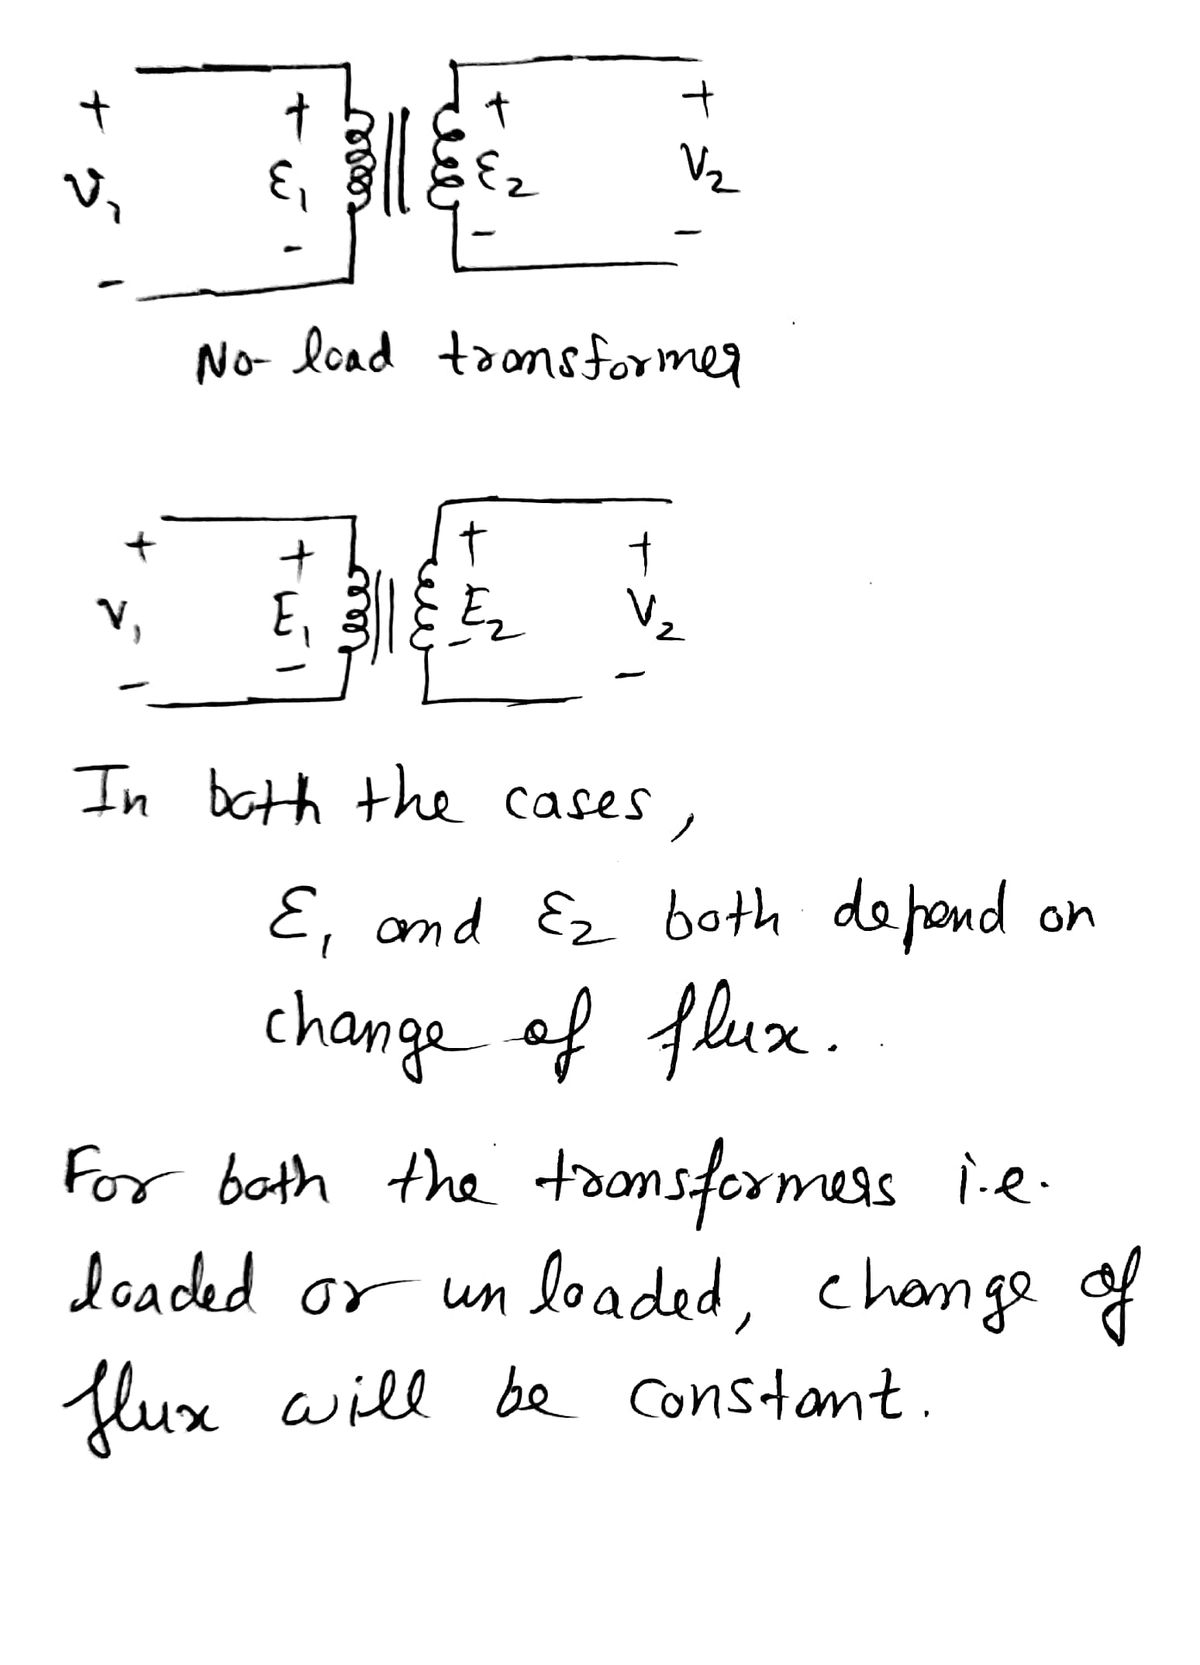 + + + +
V1 ε1 ε2 V2
- - - -
No-load transformer
+ + + +
V1 E1 E2 V2
- - - -
In both the cases,
ε1 and ε2 both depend on
change of flux.
For both the transformers i.e.
loaded or unloaded, change of
flux will be constant.